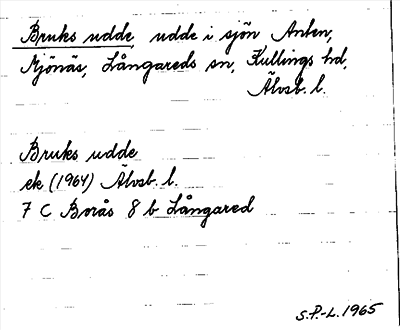 Bruks udde, udde i sjön Anten,
Mjönäs, Långareds sn, Kullings hd,
Älvsb. l.
Bruks udde
ek (1964) Älvsb. l.
7 C Borås 8 b Långared
S.P.-L. 1965